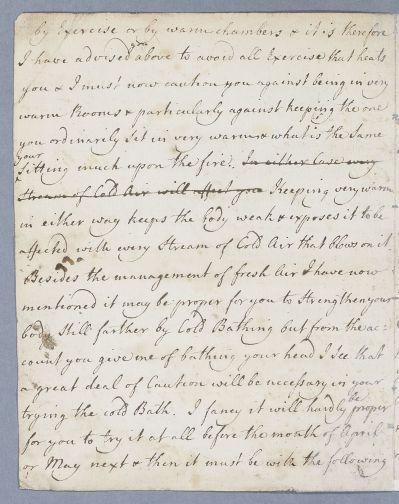 by Exercise or by warm chambers & it is therefore
I have advised you above to avoid all Exercise that heats
you & I must now caution you against being in very
warm Rooms & particularly against keeping the one
you ordinarily sit in very warm & what is the same
your Sitting much upon the fire. In either Case every
Stream of Cold Air will affect you Keeping very warm
in either way keeps the body weak & exposes it to be
affected with every Stream of Cold Air that blows on it
Besides the management of fresh Air I have now
mentioned it may be proper for you to Strengthen your
body Still farther by Cold Bathing but from the ac=
count you give me of bathing your head I See that
a great deal of Caution will be necessary in your
trying the cold Bath. I fancy it will hardly be proper
for you to try it at all before the month of April
or May next & then it must be with the following